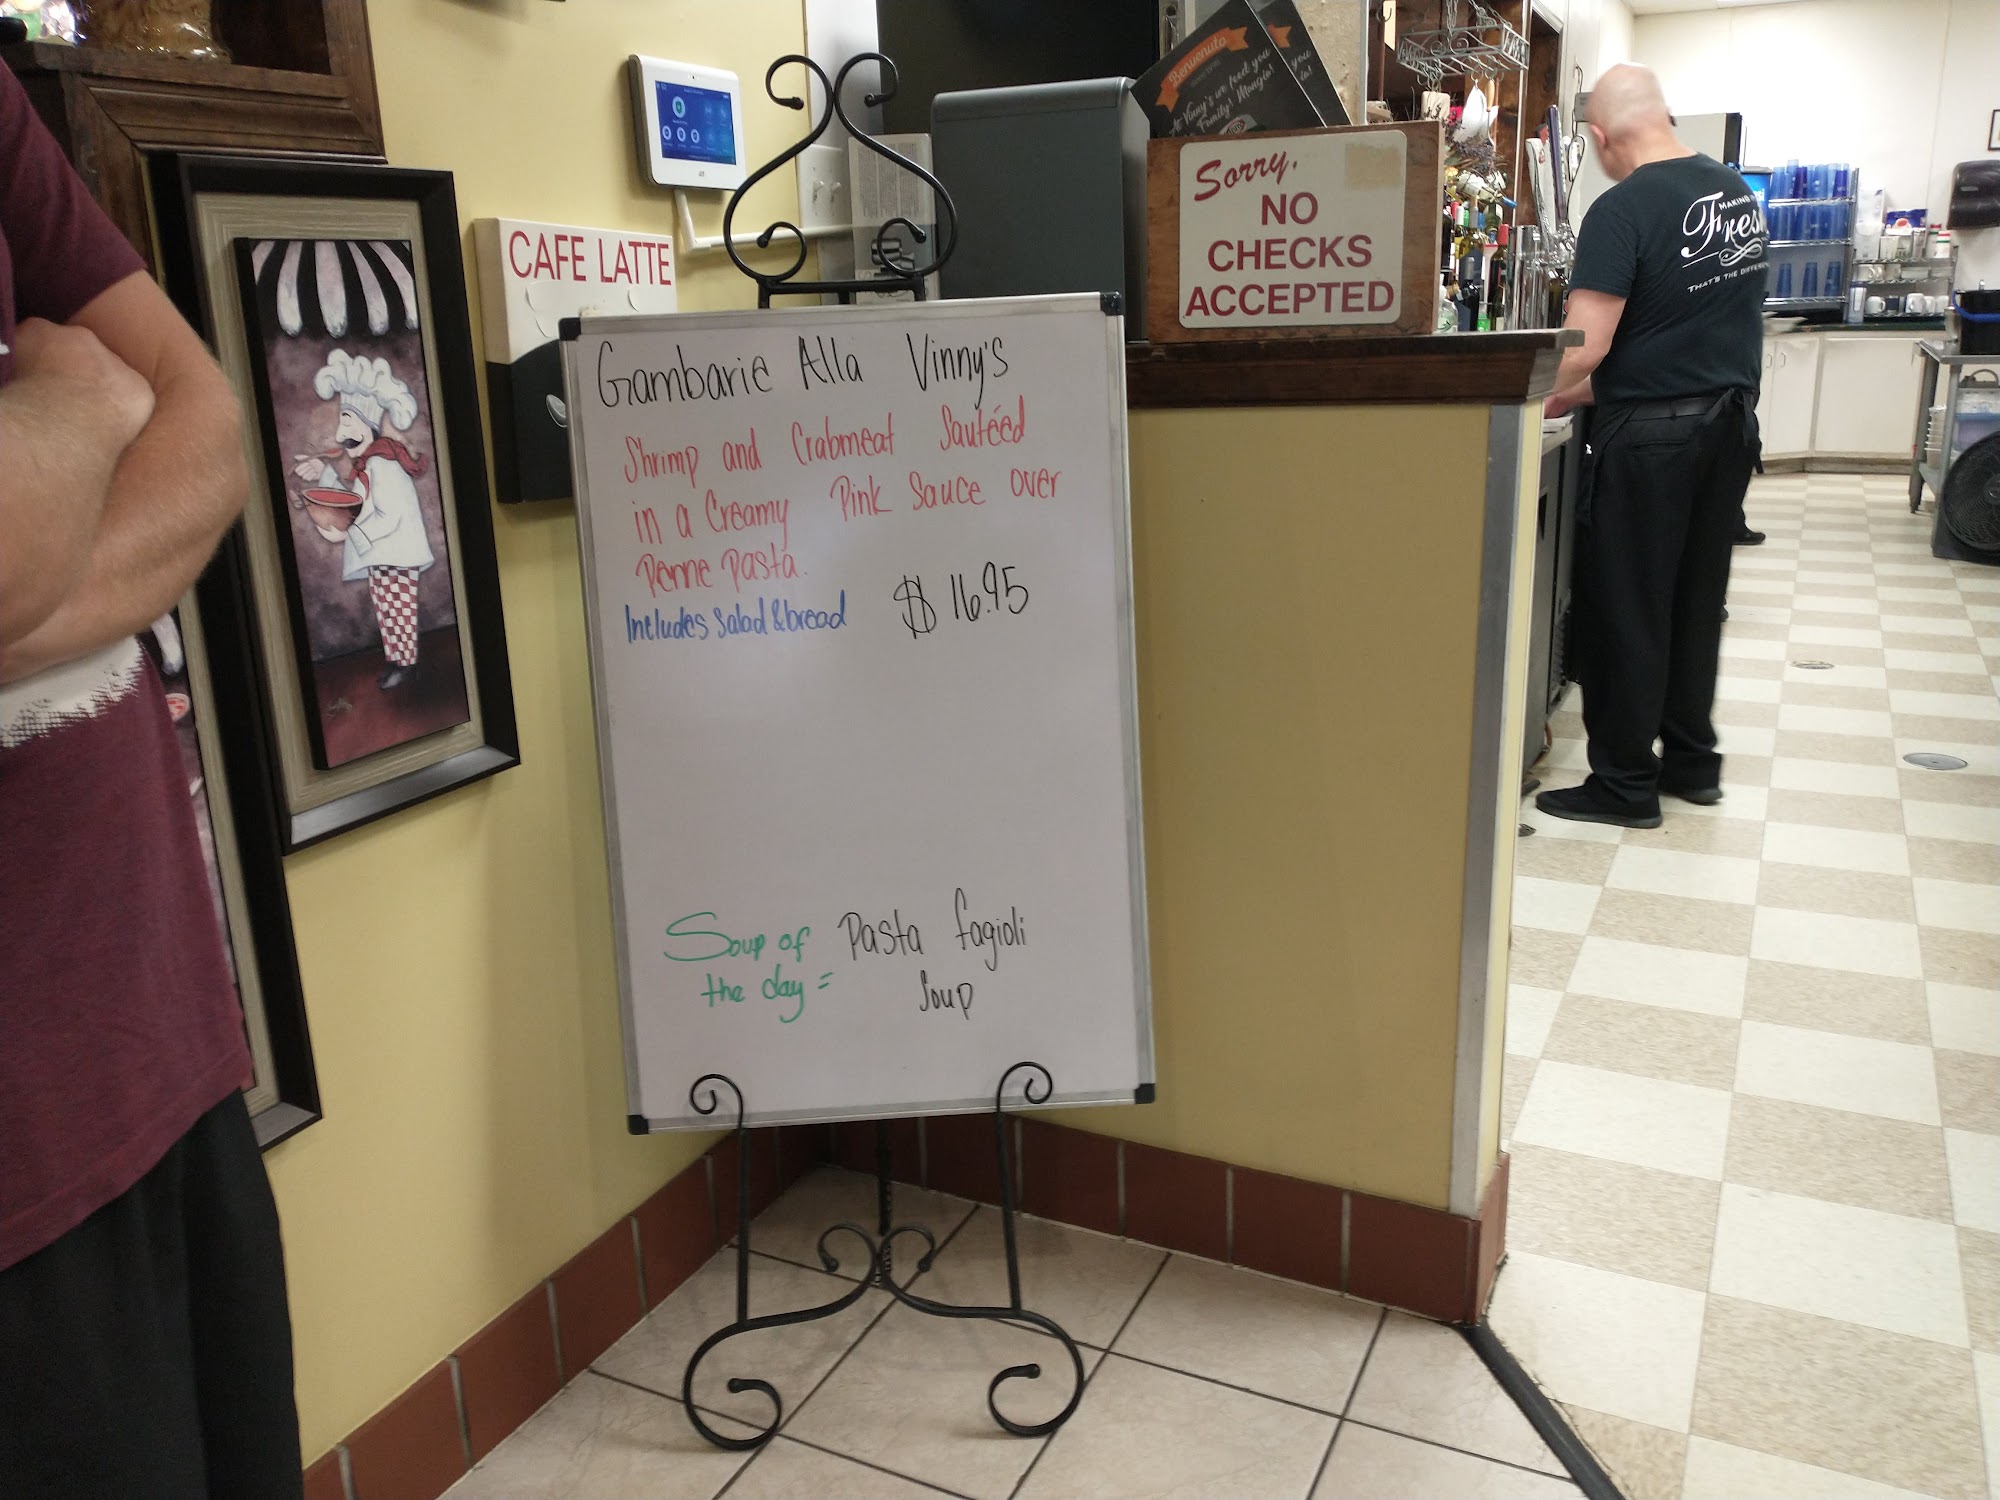 Benvenuto
At Vinny's we feed you
Family! Mangia!
Sorry,
NO
CHECKS
ACCEPTED
CAFE LATTE
MAKING
Fresh
THAT'S THE DIFFERENCE
Gambarie Alla Vinny's
Shrimp and Crabmeat Sautéed
in a Creamy Pink Sauce over
Penne Pasta.
Includes Salad & bread $16.95
Soup of Pasta fagioli
the day = Soup